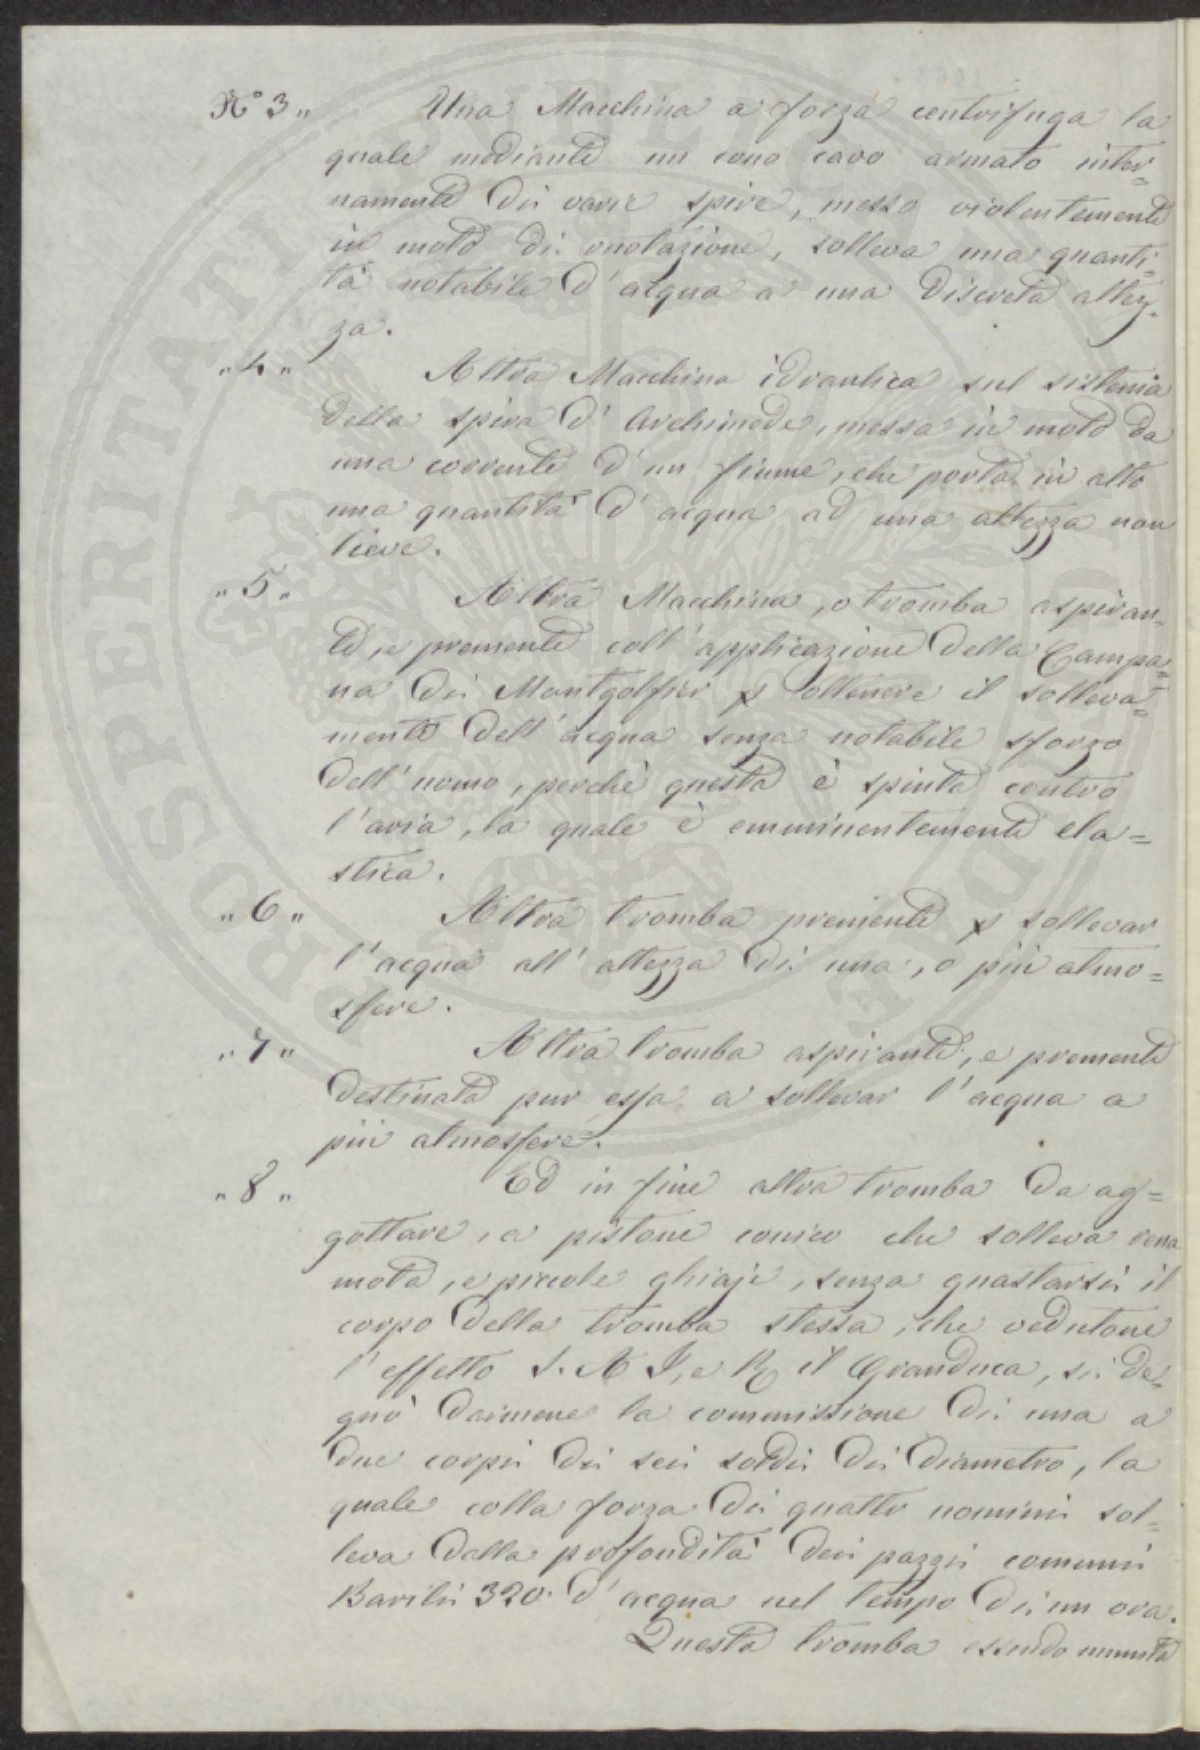 N.° 3 „ Una Macchina a forza centrifuga la
quale mediante un cono cavo armato inter=
namente di varie spire, messo violentemente
in moto di rotazione, solleva una quanti=
tà notabile d'acqua a una discreta altez=
za.
„ 4 „ Altra Macchina idraulica sul sistema
della spira d'Archimede, messa in moto da
una corrente d'un fiume, che porta in alto
una quantità d'acqua ad una altezza non
lieve.
„ 5 „ Altra Macchina, o tromba aspiran=
te, e premente coll'applicazione della Campa=
na di Montgolfier p ottenere il solleva=
mento dell'acqua senza notabile sforzo
dell'uomo, perchè questa è spinta contro
l'aria, la quale è emminentemente ela=
stica.
„ 6 „ Altra tromba premente p sollevar
l'acqua all'altezza di una, o più atmo=
sfere.
„ 7 „ Altra tromba aspirante, e premente
destinata pur essa a sollevar l'acqua a
più atmosfere.
„ 8 „ Ed in fine altra tromba da ag=
gottare, a pistone conico che solleva rena
mota, e piccole ghiaje, senza guastarsi il
corpo della tromba stessa, che vedutone
l'effetto S. A. I., e R. il Granduca, si de=
gnò darmene la commissione di una a
due corpi di sei soldi di diametro, la
quale colla forza di quattr uomini sol=
leva dalla profondità dei pozzi comuni
Barili 320. d'acqua nel tempo di un ora.
Questa tromba essendo munita
PROSPERITATI PUBLICAE